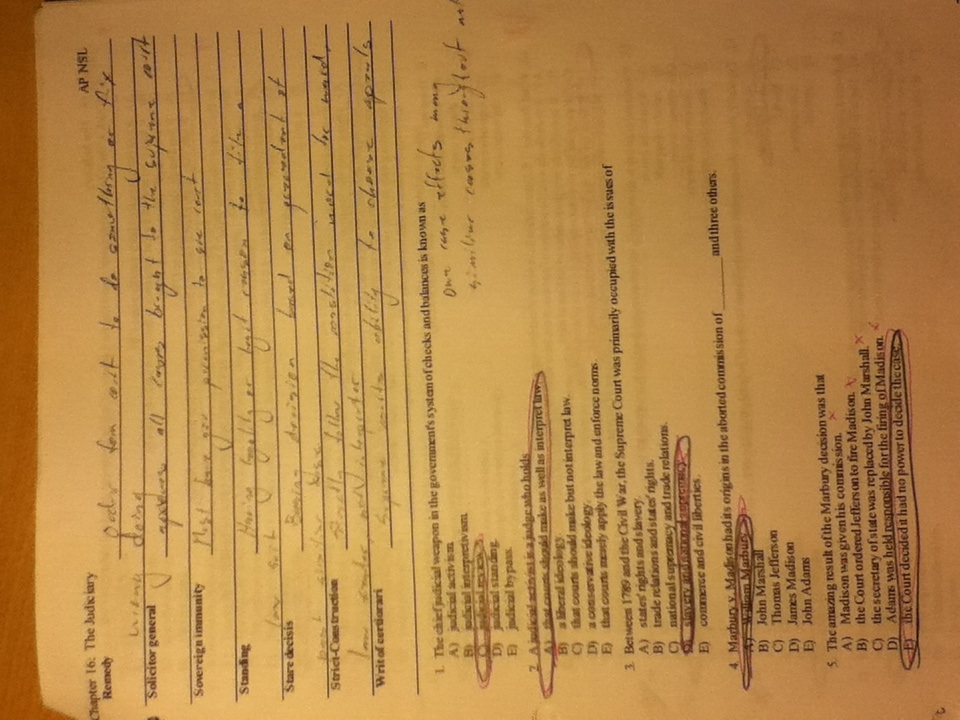 Chapter 16: The Judiciary AP NSL
Remedy Order from court to do something or fix
wrong doing
Solicitor general approves all cases brought to the supreme court
Sovereign immunity Must have permission to sue
Standing Having legality or legit reason to file a
law suit
Stare decisis Basing decision based on of
past similar case
Strict-Construction Strictly follow the word for word,
law
Writ of certiorari Supreme courts ability to choose
1. The chief judicial weapon in the government's system of checks and balances is known as
A) judicial activism
B) judicial interpretivism
C) judicial review
D) judicial standing.
E) judicial bypass.
One case effects many
cases throughout
2. A judicial activist is a judge who holds
A) that courts should make as well as interpret law.
B) a liberal ideology.
C) that courts should make but not interpret law.
D) a conservative ideology.
E) that courts merely apply the law and enforce norms.
3. Between 1789 and the Civil War, the Supreme Court was primarily occupied with the issues of
A) states' rights and slavery.
B) trade relations and states' rights.
C) national supremacy and trade relations.
D) slavery and national supremacy.
E) commerce and civil liberties.
4. Marbury v. Madison had its origins in the aborted commission of ________ and three others.
A) William Marbury
B) John Marshall
C) Thomas Jefferson
D) James Madison
E) John Adams
5. The amazing result of the Marbury decision was that
A) Madison was given his commission.
B) the Court ordered Jefferson to fire Madison.
C) the secretary of state was replaced by John Marshall.
D) Adams was held responsible for the firing of Madison.
E) the Court decided it had no power to decide the case.